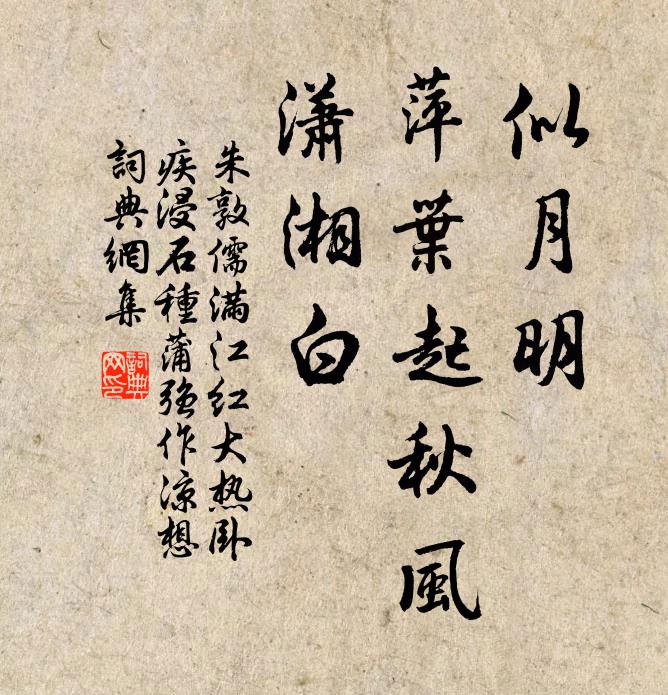 似月明
萍葉起秋風
瀟湘白
朱敦儒满江红大热卧
疾浸石種蒲强作凉想
詞典網集
詞典
网印